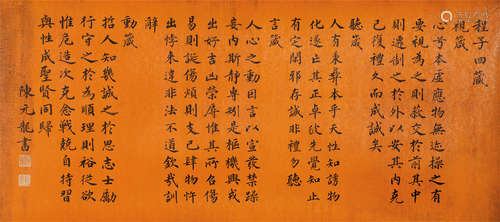 程子四箴
視箴
心兮本虛應物無迹操之有
要視為之則蔽交於前其中
則遷制之於外以安其內克
己復禮久而誠矣
聽箴
人有秉彝本乎天性知誘物
化遂亡其正卓彼先覺知止
有定閑邪存誠非禮勿聽
言箴
人心之動因言以宣發禁躁
妄內斯靜專矧是樞機興戎
出好吉凶榮辱惟其所召傷
易則誕傷煩則支己肆物忤
出悖來違非法不道欽哉訓
辭
動箴
哲人知幾誠之於思志士勵
行守之於為順理則裕從欲
惟危造次克念戰兢自持習
與性成聖賢同歸
陳元龍書